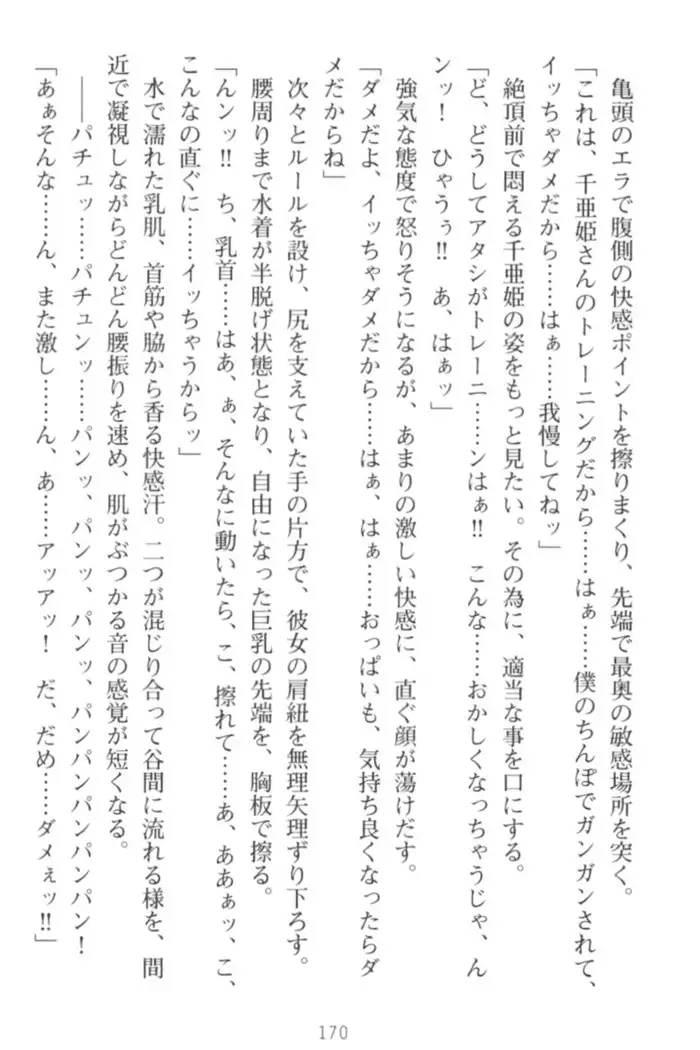 亀頭のエラで腹側の快感ポイントを擦りまくり、先端で最奥の敏感場所を突く。
「これは、千亜姫さんのトレーニングだから……はぁ……僕のちんぽでガンガンされて、
イッちゃダメだから……はぁ……我慢してねッ」
絶頂前で悶える千亜姫の姿をもっと見たい。その為に、適当な事を口にする。
「ど、どうしてアタシがトレーニ……ンはぁ!! こんな……おかしくなっちゃうじゃ、ん
ンッ! ひゃうぅ!! あ、はぁッ」
強気な態度で怒りそうになるが、あまりの激しい快感に、直ぐ顔が蕩けだす。
「ダメだよ、イッちゃダメだから……はぁ、はぁ……おっぱいも、気持ち良くなったらダ
メだからね」
次々とルールを設け、尻を支えていた手の片方で、彼女の肩紐を無理矢理ずり下ろす。
腰周りまで水着が半脱げ状態となり、自由になった巨乳の先端を、胸板で擦る。
「んンッ!! ち、乳首……はあ、ぁ、そんなに動いたら、こ、擦れて……あ、ああぁッ、こ、
こんなの直ぐに……イッちゃうからッ」
水で濡れた乳肌、首筋や脇から香る快感汗。二つが混じり合って谷間に流れる様を、間
近で凝視しながらどんどん腰振りを速め、肌がぶつかる音の感覚が短くなる。
――パチュッ……パチュンッ……パンッ、パンッ、パンッ、パンパンパンパンパン!
「あぁそんな……ん、また激し……ん、あ……アッアッ! だ、だめ……ダメぇッ!!」
170